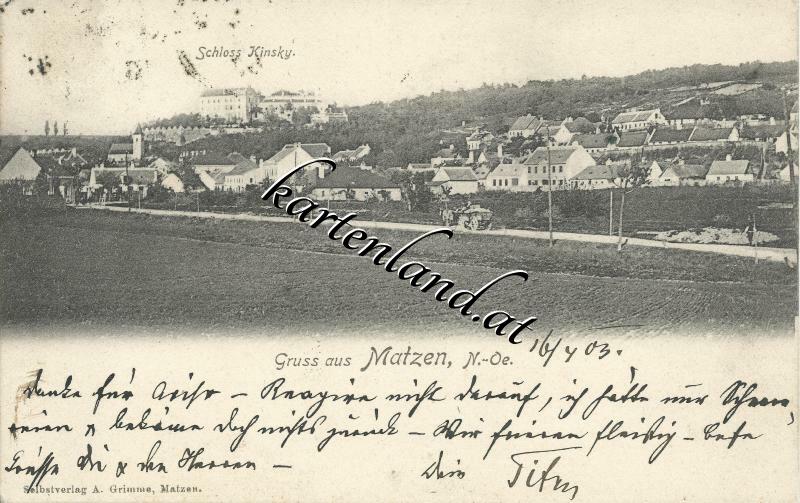 Schloss Kinsky.
kartenland.at
Gruss aus Matzen, N.-Oe.
16/4 03.
Danke für – Reagire nicht darauf, ich hätte nur
& bekäme doch nichts zurück – Wir frieren fleißig – beste
Grüsse Dir & den Herren –
Dein
Selbstverlag A. Grimme, Matzen.